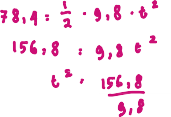 78,4 = 1/2 · 9,8 · t²
156,8 = 9,8 t²
t² = 156,8/9,8